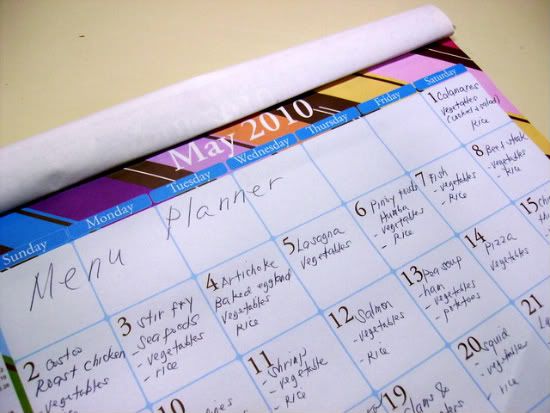 May 2010
Sunday Monday Tuesday Wednesday Thursday Friday Saturday
Menu Planner
1 Calamares
vegetables
Rice
2 Costco
Roast chicken
vegetables
- rice
3 stir fry
seafoods
- vegetable
- rice
4 Artichoke
Baked eggplant
vegetables
Rice
5 Lasagna
vegetables
6 Pinoy
Humba
- vegetables
- Rice
7 Fish
- vegetables
- Rice
8 Beef steak
- vegetables
- rice
10
11 shrimp
- vegetable
- rice
12 Salmon
- vegetables
- Rice
13 Pea soup
- ham
- vegetables
- potatoes
14 Pizza
vegetables
15
19
20 squid
- vegetables
- Rice
21